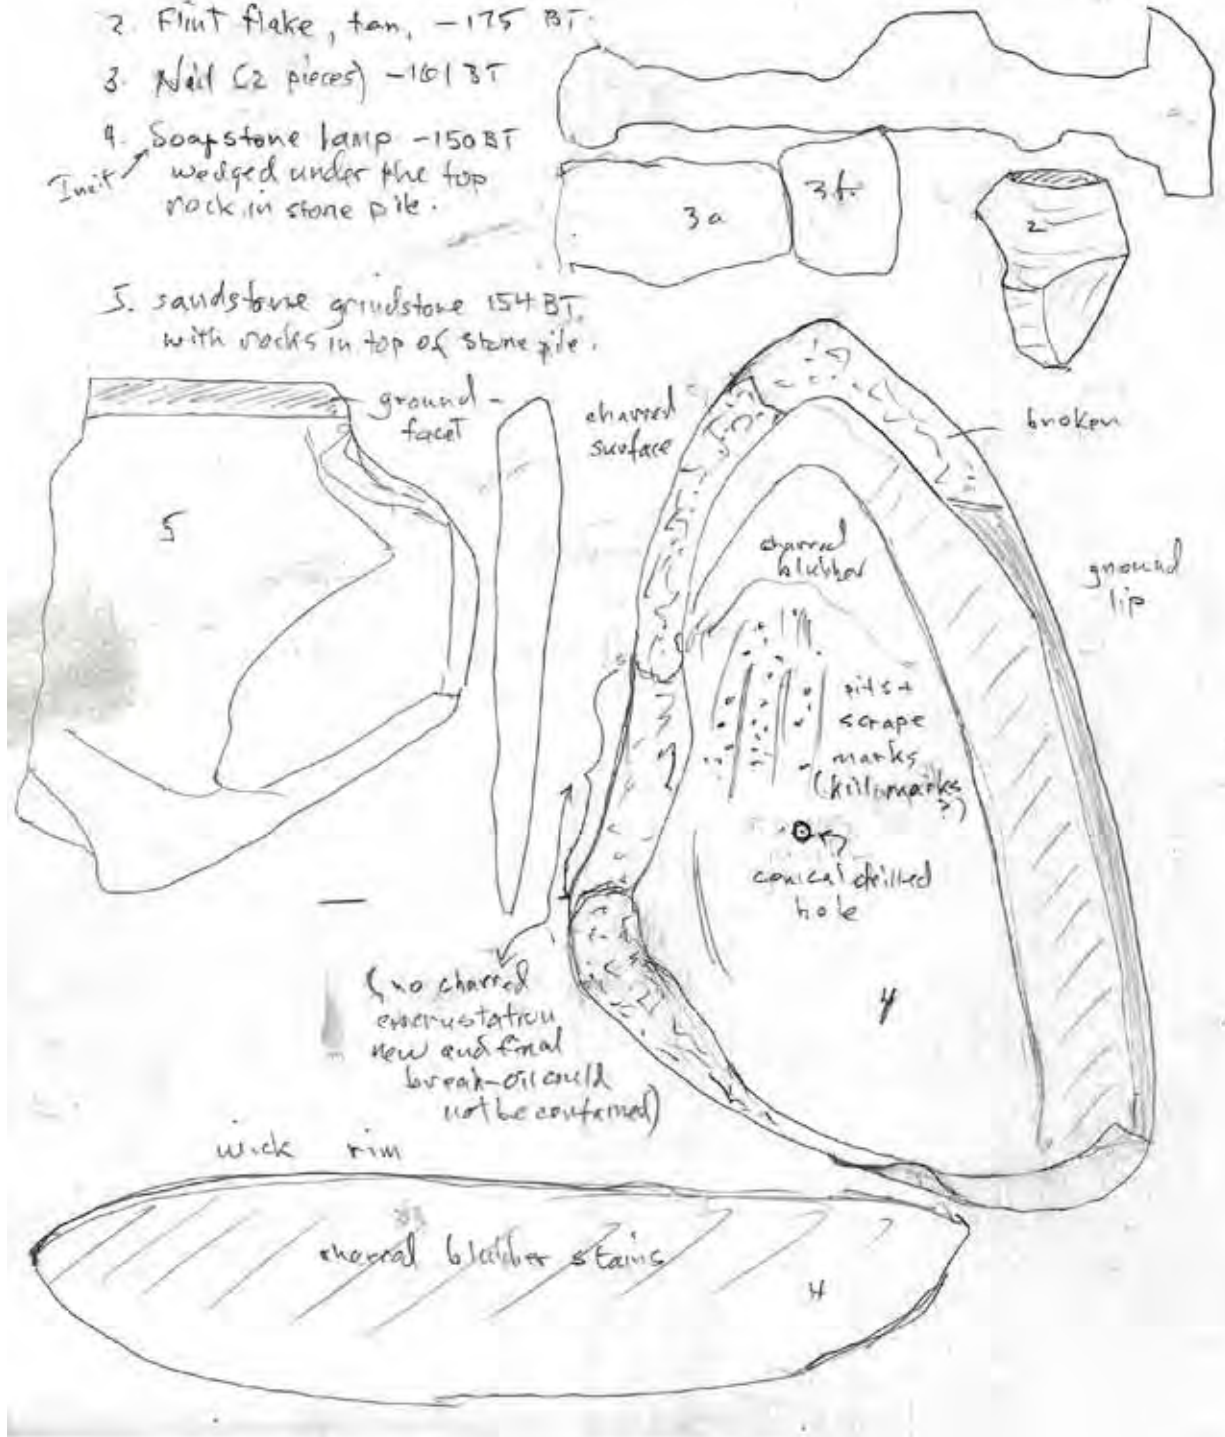 2. Flint flake, tan, -175 BT.
3. Nail (2 pieces) -161 BT
4. Soapstone lamp -150 BT
Inuit
wedged under the top
rock in stone pile.
3a
3b
2
5. sandstone grindstone 154 BT.
with rocks in top of stone pile.
ground
facet
charred
surface
broken
5
charred
blubber
ground
lip
pits +
scrape
marks
(kill marks
?)
conical drilled
hole
4
(no charred
encrustation
new and final
break-oil could
not be contained)
wick rim
charred blubber stains
4